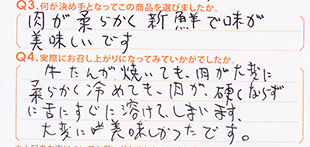 Q3.何が決め手となってこの商品を選びましたか。
肉が柔らかく新鮮で味が
美味しいです
Q4.実際にお召し上がりになってみていかがでしたか。
牛たんが焼いても、肉が大変に
柔らかく冷めても、肉が、硬くならず
に舌にすぐに溶けて、しまいます、
大変に美味しかったです。